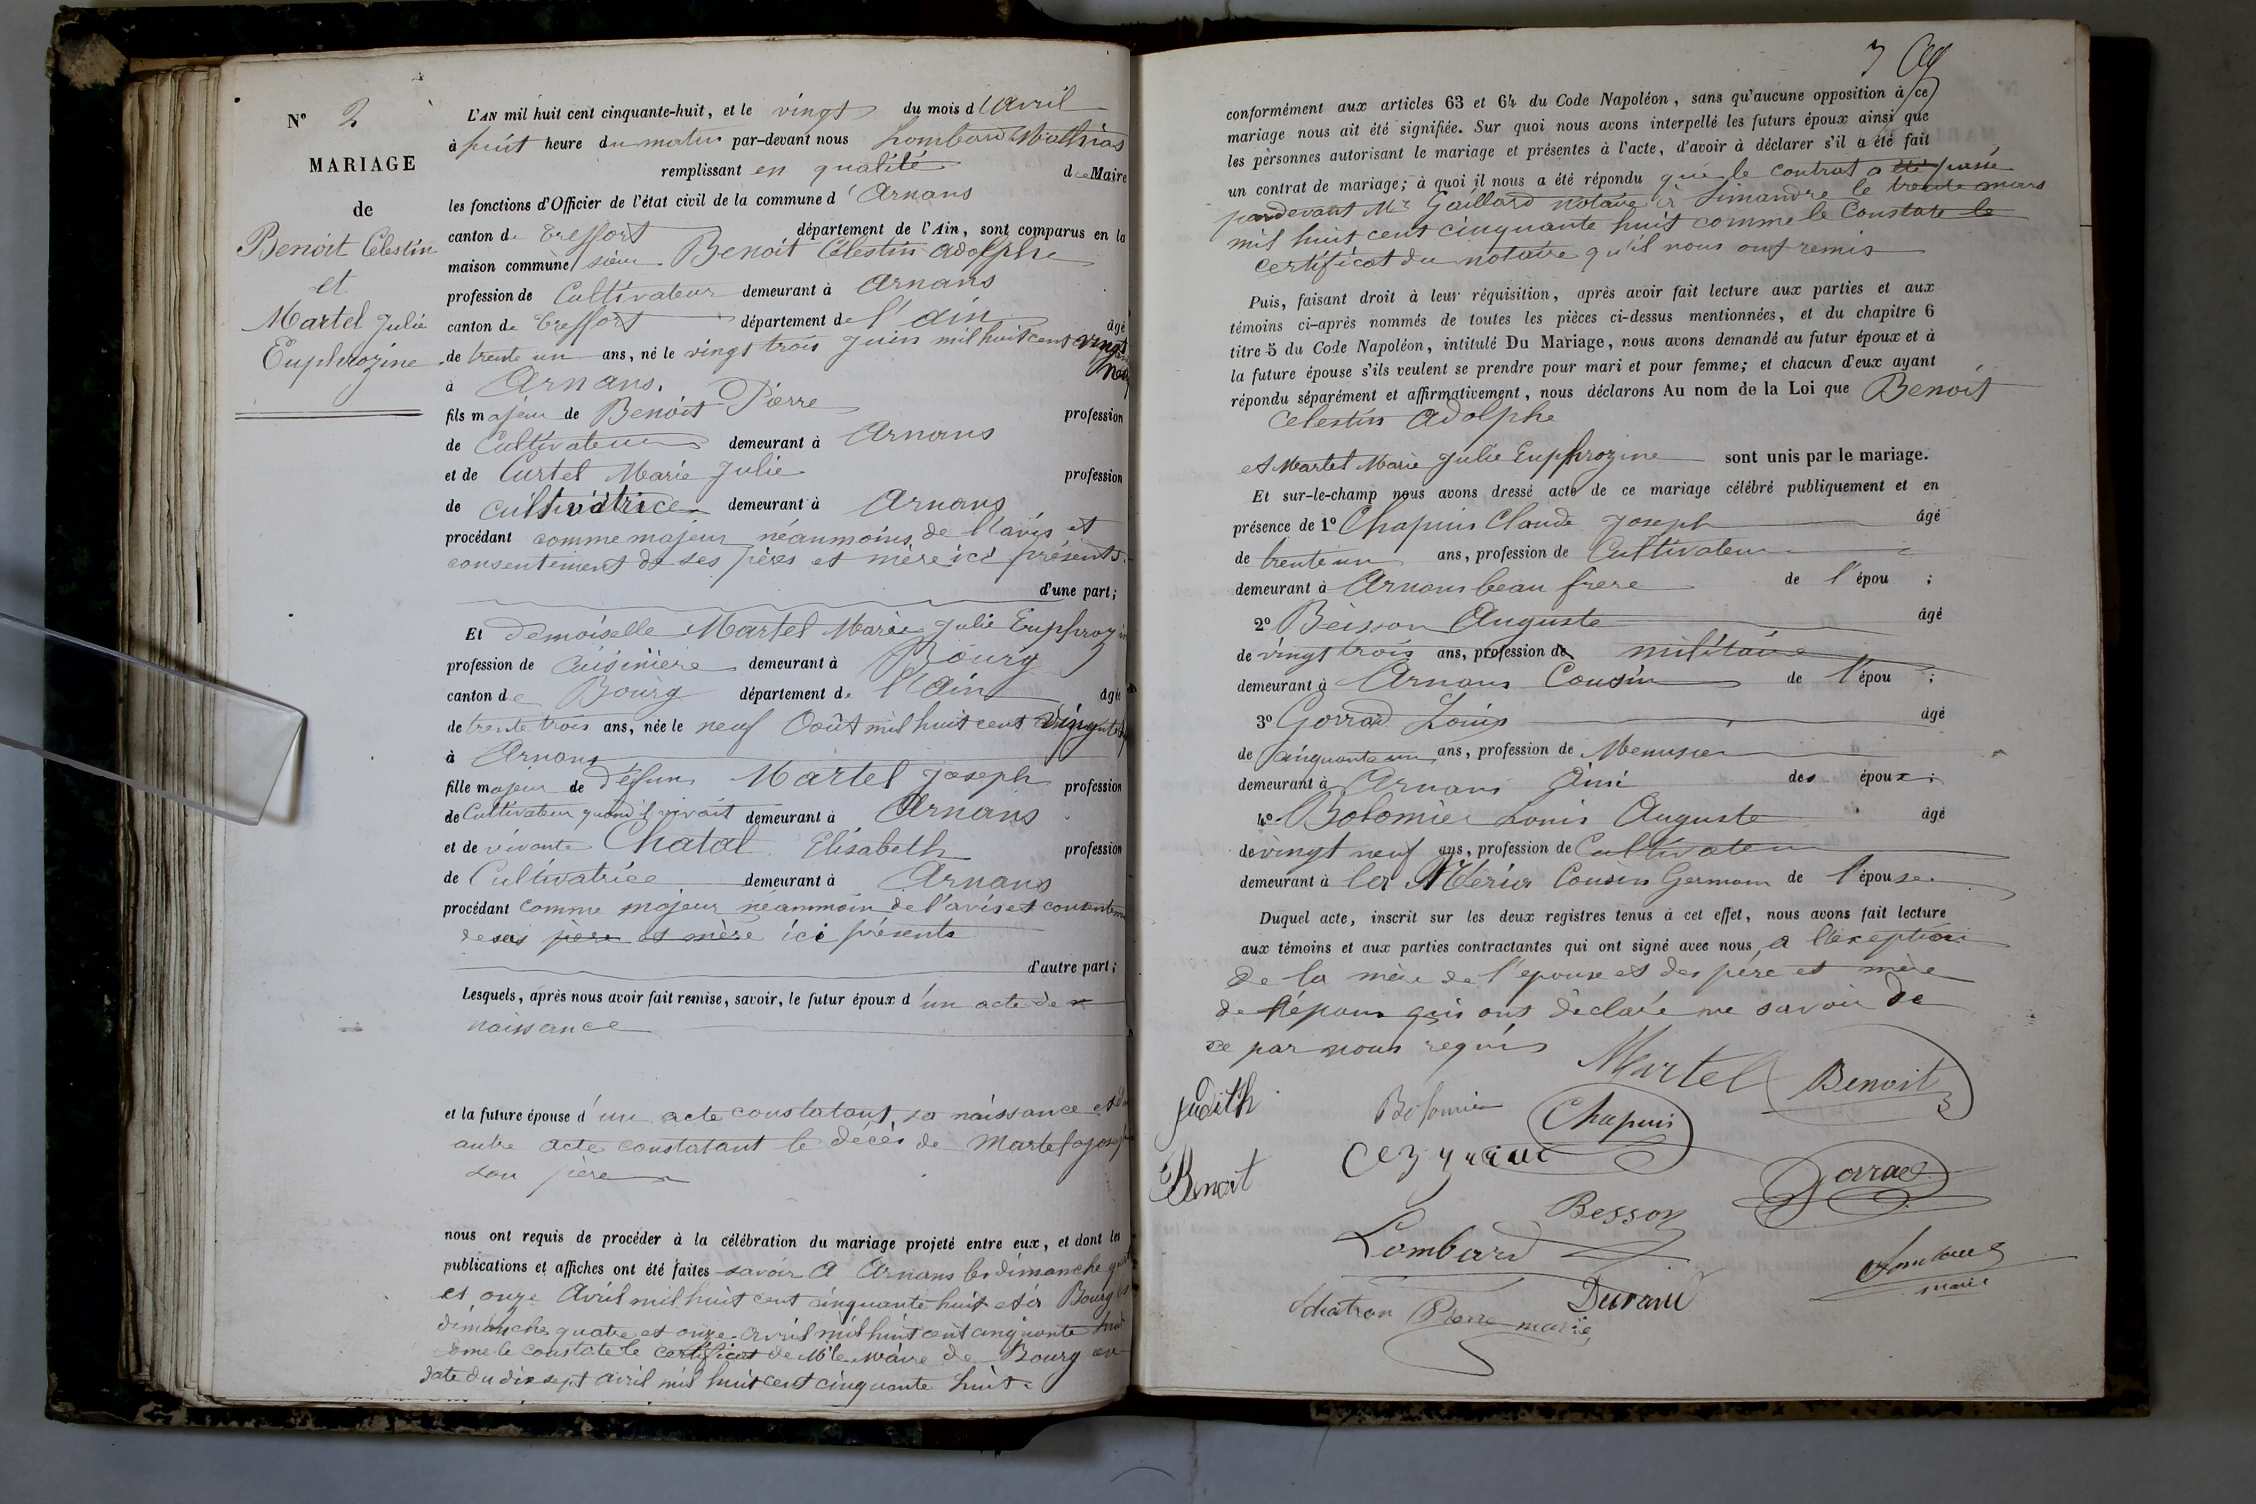 N° 2
MARIAGE
de
Benoit Célestin
et
Martel Julie
Euphrozine
L'AN mil huit cent cinquante-huit, et le vingt du mois d'Avril
à huit heure du matin par-devant nous Lombard Mathias
remplissant en qualité de Maire
les fonctions d'Officier de l'état civil de la commune d'Arnans
canton de Treffort département de l'Ain, sont comparus en la
maison commune sieur Benoit Célestin Adolphe
profession de Cultivateur demeurant à Arnans
canton de Treffort département de l'ain âgé
de trente un ans, né le vingt trois Juin mil huit cent vingt
à Arnans.
fils majeur de Benoit Pierre profession
de Cultivateur demeurant à Arnans
et de Curtet Marie Julie profession
de cultivatrice demeurant à Arnans
procédant comme majeur néanmoins de l'avis et
consentement de ses pères et mère ici présents
d'une part;
Et Demoiselle Martel Marie Julie Euphrozin
profession de Cuisinière demeurant à Bourg
canton de Bourg département de l'Ain âgé
de trente trois ans, née le neuf Août mil huit cent vingt
à Arnans
fille majeur de défun Martel Joseph profession
de Cultivateur quand il vivait demeurant à Arnans
et de vivante Chatal Elisabeth profession
de Cultivatrice demeurant à Arnans
procédant comme majeur néanmoin de l'avis et consentem
de ses père et mère ici présente
d'autre part;
Lesquels, après nous avoir fait remise, savoir, le futur époux d'un acte de
naissance
et la future épouse d'un acte constatant sa naissance et
autre acte constatant le décès de Martel Joseph
son père
nous ont requis de procéder à la célébration du mariage projeté entre eux, et dont les
publications et affiches ont été faites savoir à Arnans les dimanche
et onze Avril mil huit cent cinquante huit et à Bourg
dimanche quatre et onze avril mil huit cent cinquante huit
come le constate le certificat de Mr le Maire de Bourg en
date du dix sept avril mil huit cent cinquante huit.
3
conformément aux articles 63 et 64 du Code Napoléon, sans qu'aucune opposition à ce
mariage nous ait été signifiée. Sur quoi nous avons interpellé les futurs époux ainsi que
les personnes autorisant le mariage et présentes à l'acte, d'avoir à déclarer s'il a été fait
un contrat de mariage; à quoi il nous a été répondu que le contrat a été passé
pardevant Mr Gaillard notaire à Simandre le trente mars
mil huit cent cinquante huit comme le Constate le
certificat du notaire qu'il nous ont remis
Puis, faisant droit à leur réquisition, après avoir fait lecture aux parties et aux
témoins ci-après nommés de toutes les pièces ci-dessus mentionnées, et du chapitre 6
titre 5 du Code Napoléon, intitulé Du Mariage, nous avons demandé au futur époux et à
la future épouse s'ils veulent se prendre pour mari et pour femme; et chacun d'eux ayant
répondu séparément et affirmativement, nous déclarons Au nom de la Loi que Benoit
Celestin Adolphe
et Martel Marie Julie Euphrozine sont unis par le mariage.
Et sur-le-champ nous avons dressé acte de ce mariage célébré publiquement et en
présence de 1° Chapuis Claude Joseph âgé
de trente un ans, profession de Cultivateur
demeurant à Arnans beau frere de l'épou ;
2° Beisson Auguste âgé
de vingt trois ans, profession de militaire
demeurant à Arnans Cousin de l'épou ;
3° Gorrad Louis âgé
de cinquante un ans, profession de Menusier
demeurant à Arnans Ami des époux ;
4° Bolomier Louis Auguste âgé
de vingt neuf ans, profession de Cultivateur
demeurant à Cousin Germain de l'épouse
Duquel acte, inscrit sur les deux registres tenus à cet effet, nous avons fait lecture
aux témoins et aux parties contractantes qui ont signé avec nous a l'exeption
de la mère de l'epouse et des père et mère
de l'épour qui ont déclaré ne savoir de
ce par nous requis
Martel Benoit
Judith Bolomier Chapuis
Benoit Gorrad
Besson
Lombard
Lombard
maire
Chatron Pierre marie Durand